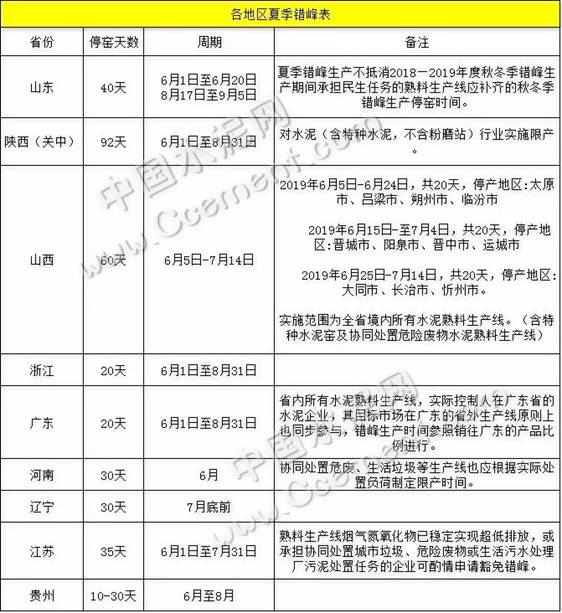 各地区夏季错峰表
省份 停窑天数 周期 备注
山东 40天 6月1日至6月20日
8月17日至9月5日
夏季错峰生产不抵消2018—2019年度秋冬季错峰生
产期间承担民生任务的熟料生产线应补齐的秋冬季
错峰生产停窑时间。
陕西（关中） 92天 6月1日至8月31日
对水泥（含特种水泥，不含粉磨站）行业实施限产
。
山西 60天 6月5日-7月14日
2019年6月5日-6月24日，共20天，停产地区:太原
市、吕梁市、朔州市、临汾市
2019年6月15日-至7月4日，共20天，停产地
区:晋城市、阳泉市、晋中市、运城市
2019年6月25日-7月14日，共20天，停产地区:
大同市、长治市、忻州市。
实施范围为全省境内所有水泥熟料生产线。（含特
种水泥窑及协同处置危险废物水泥熟料生产线）
浙江 20天 6月1日至8月31日
广东 20天 6月1日至8月31日
省内所有水泥熟料生产线，实际控制人在广东省的
水泥企业，其目标市场在广东的省外生产线原则上
也同步参与，错峰生产时间参照销往广东的产品比
例进行。
河南 30天 6月
协同处置危废、生活垃圾等生产线也应根据实际处
置负荷制定限产时间。
辽宁 30天 7月底前
江苏 35天 6月1日至7月31日
熟料生产线烟气氮氧化物已稳定实现超低排放，或
承担协同处置城市垃圾、危险废物或生活污水处理
厂污泥处置任务的企业可酌情申请豁免错峰。
贵州 10-30天 6月至8月
中国水泥网
www.Ccement.com
中国水泥网
www.Ccement.com